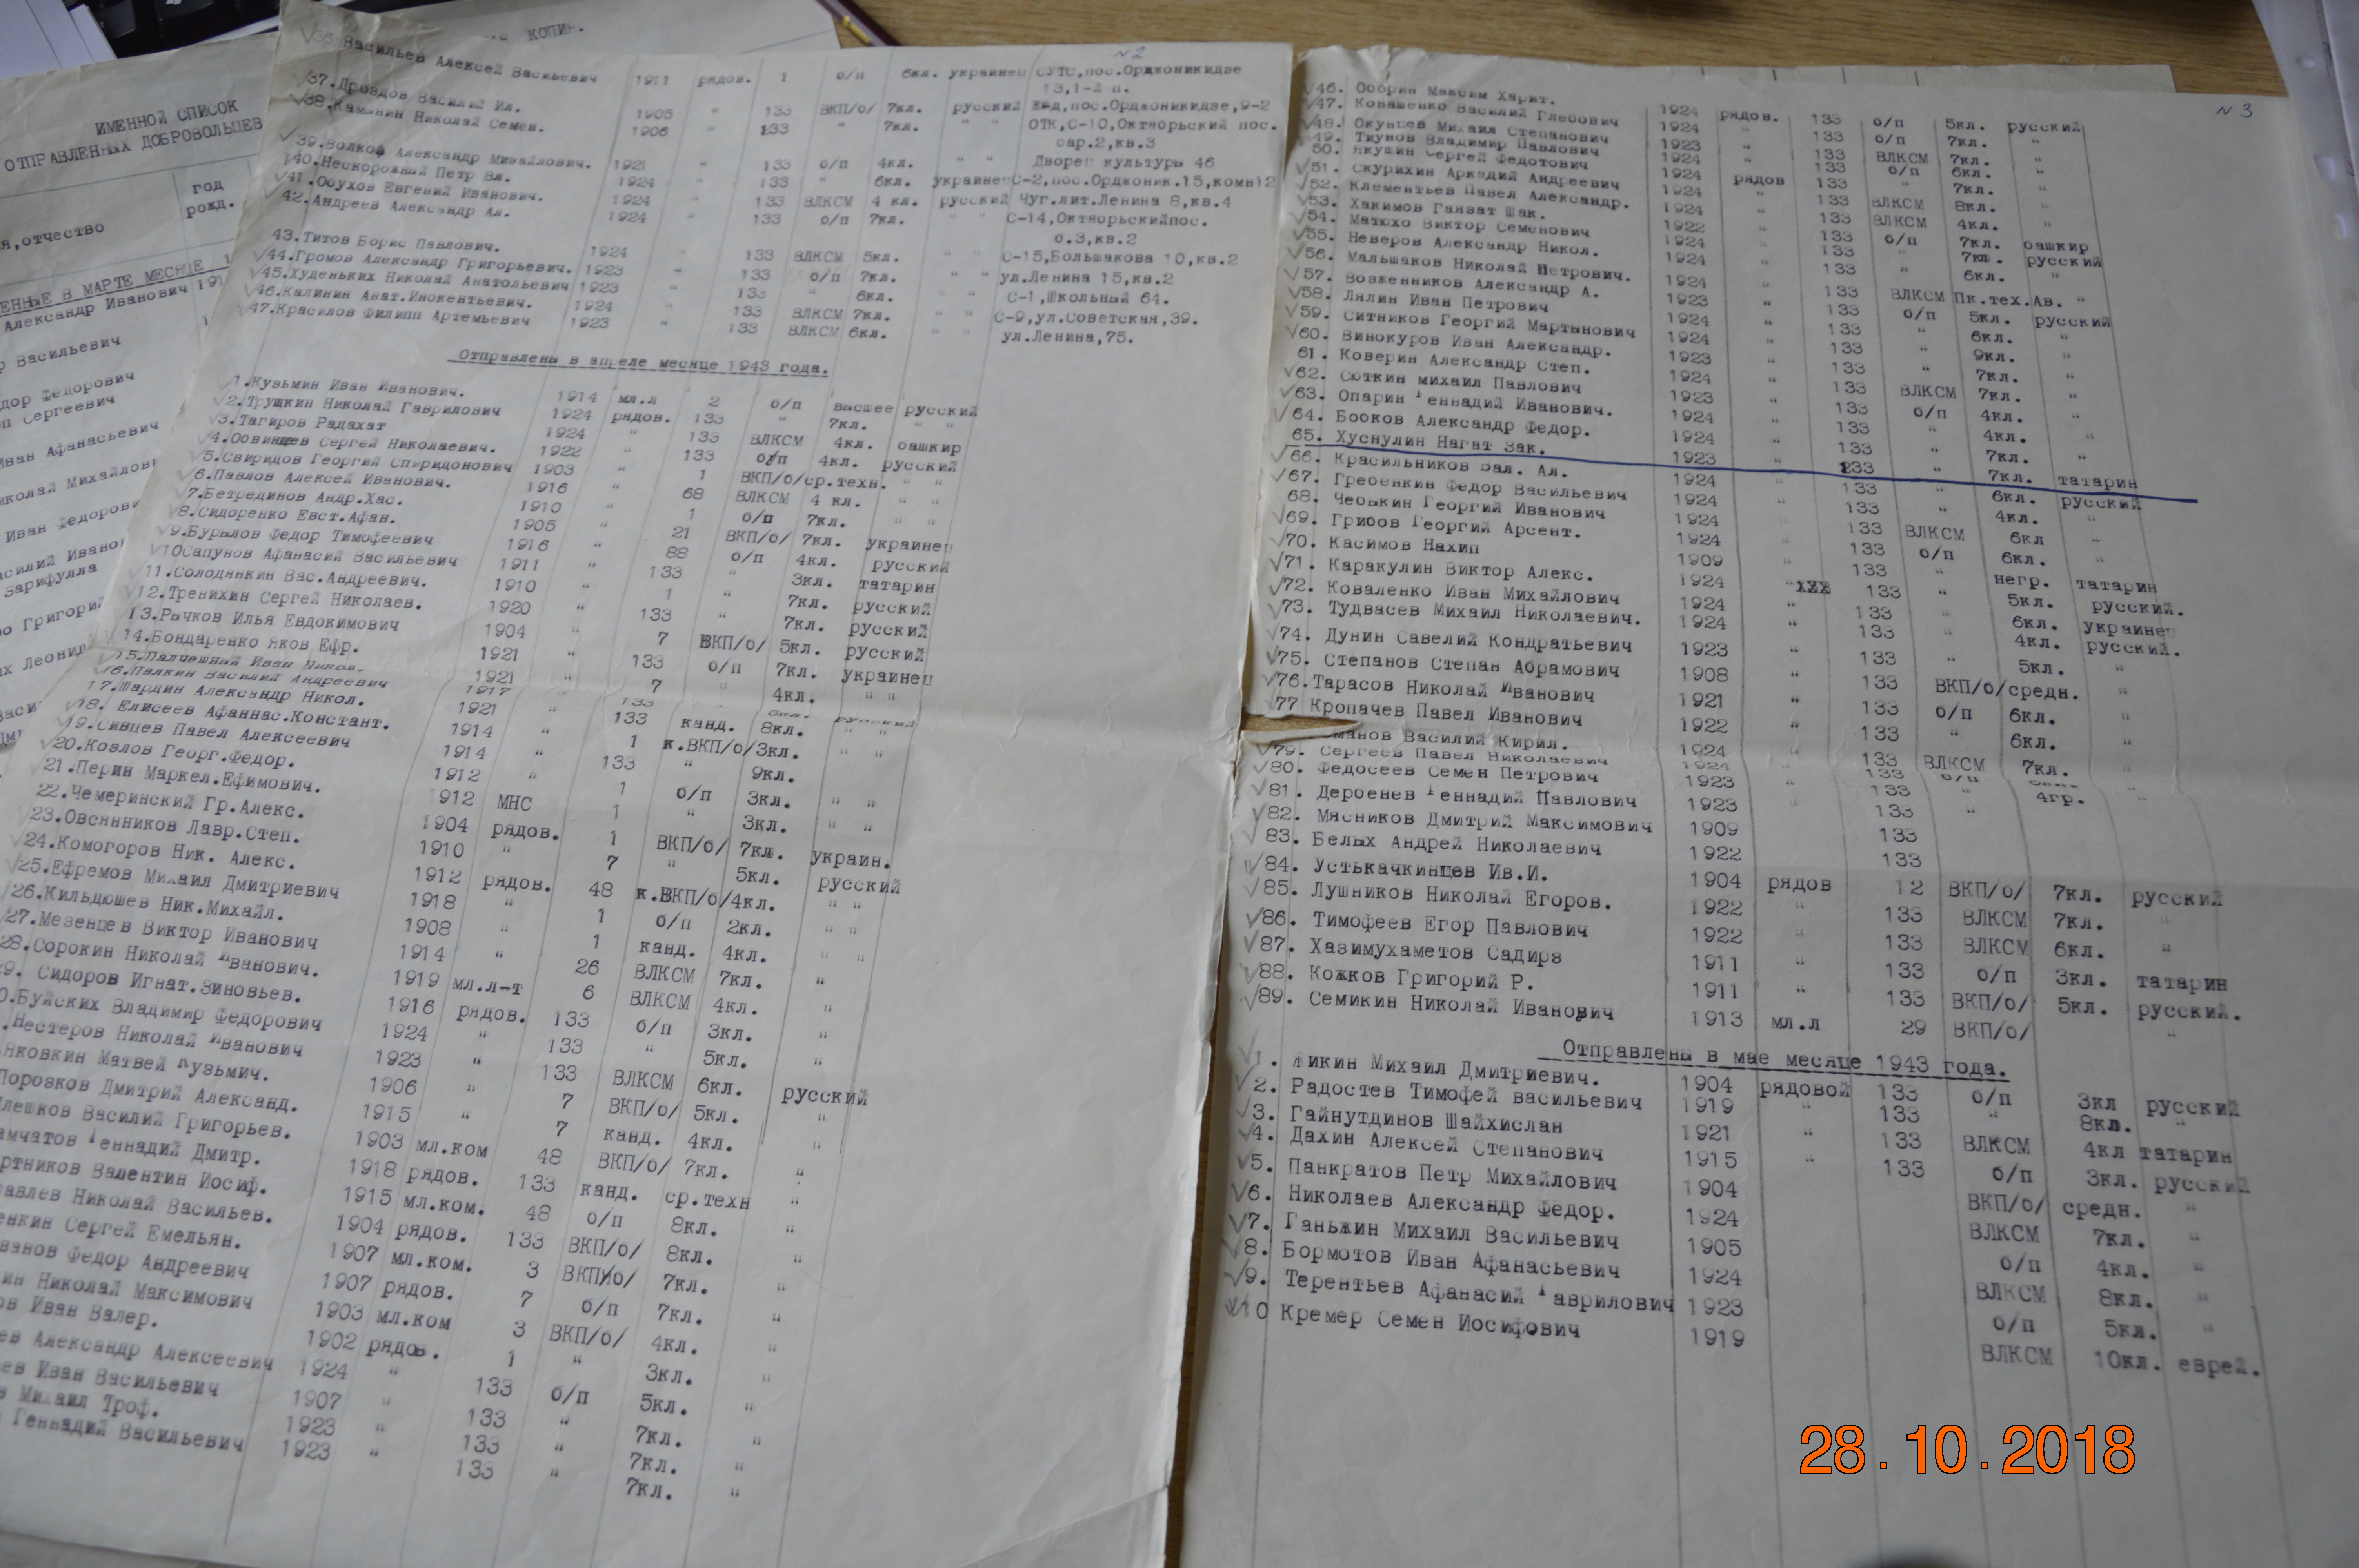 КОПИЯ.
ИМЕННОЙ СПИСОК
ОТПРАВЛЕННЫХ ДОБРОВОЛЬЦЕВ
год
рожд.
я,отчество
ЕННЫЕ В МАРТЕ МЕСЯЦЕ
Александр Иванович
р Васильевич
дор Федорович
п Сергеевич
Иван Афанасьевич
иколай Михайлови
Иван Федорови
асилий Ивано
Зарифулла
о Григори
х Леонид
Васи
N2
36.Васильев Алексей Васильевич 1911 рядов. 1 о/п 6кл. украинец СУТС,пос.Орджоникидзе
13,1-й п.
37.Дроздов Василий Ил. 1905 " 133 ВКП/б/ 7кл. русский ЖКД,пос.Орджоникидзе,9-2
38.Каманин Николай Семен. 1906 " 133 " 7кл. " " ОТК,С-10,Октябрьский пос.
бар.2,кв.3
39.Волков Александр Михайлович. 1921 " 133 о/п 4кл. " " Дворец культуры 46
40.Нескорожный Петр Вл. 1924 " 133 " 6кл. украинец С-2,пос.Орджоник.15,комн12
41.Обухов Евгений Иванович. 1924 " 133 ВЛКСМ 4 кл. русский Чуг.лит.Ленина 8,кв.4
42.Андреев Александр Ал. 1924 " 133 о/п 7кл. " " С-14,Октябрьскийпос.
б.3,кв.2
43.Титов Борис Павлович. 1924 " 133 ВЛКСМ 5кл. " " С-15,Большакова 10,кв.2
44.Громов Александр Григорьевич. 1923 " 133 о/п 7кл. " " ул.Ленина 15,кв.2
45.Худеньких Николай Анатольевич 1923 " 133 " 6кл. С-1,Школьный 64.
46.Калинин Анат.Инокентьевич. 1924 " 133 ВЛКСМ 7кл. " " С-9,ул.Советская,39.
47.Красилов Филипп Артемьевич 1923 " 133 ВЛКСМ 6кл. " " ул.Ленина,75.
Отправлены в апреле месяце 1943 года.
1.Кузьмин Иван Иванович. 1914 мл.л 2 о/п высшее русский
2.Трущкин Николай Гаврилович 1924 рядов. 133 " 7кл. " "
3.Тагиров Радахат 1924 " 133 ВЛКСМ 4кл. башкир
4.Обвинцев Сергей Николаевич. 1922 " 133 о/п 4кл. русский
5.Свиридов Георгий Спиридонович 1903 " 1 ВКП/б/ср.техн. " "
6.Павлов Алексей Иванович. 1916 " 68 ВЛКСМ 4 кл. " "
7.Бетрединов Андр.Хас. 1910 " 1 о/п 7кл. " "
8.Сидоренко Евст.Афан. 1905 " 21 ВКП/б/ 7кл. украинец
9.Бурылов Федор Тимофеевич 1916 " 88 о/п 4кл. русский
10Сапунов Афанасий Васильевич 1911 " 133 " 3кл. татарин
11.Солодянкин Вас.Андреевич. 1910 " 1 " 7кл. русский
12.Тренихин Сергей Николаев. 1920 " 133 " 7кл. русский
13.Рычков Илья Евдокимович 1904 " 7 ВКП/б/ 5кл. русский
14.Бондаренко Яков Ефр. 1921 " 133 о/п 7кл. украинец
15.Палчешный Иван Никол. 1921 7 " 4кл. " "
16.Палкин Василий Андреевич 1917 133 русский
17.Шардин Александр Никол. 1921 133 канд. 8кл. " "
18. Елисеев Афаннас.Констант. 1914 " 1 к.ВКП/б/3кл. " "
19.Сивцев Павел Алексеевич 1914 " 133 " 9кл.
20.Козлов Георг.Федор. 1912 " 1 о/п 3кл. " "
21.Перин Маркел.Ефимович. 1912 МНС 1 " 3кл. " "
22.Чемеринский Гр.Алекс. 1904 рядов. 1 ВКП/б/ 7кл. украин.
23.Овсянников Лавр.Степ. 1910 " 7 " 5кл. русский
24.Комогоров Ник. Алекс. 1912 рядов. 48 к.ВКП/б/4кл. " "
25.Ефремов Михаил Дмитриевич 1918 " 1 о/п 2кл. " "
26.Кильдюшев Ник.Михайл. 1908 " 1 канд. 4кл. " "
27.Мезенцев Виктор Иванович 1914 " 26 ВЛКСМ 7кл. "
28.Сорокин Николай Иванович. 1919 мл.л-т 6 ВЛКСМ 4кл. "
29. Сидоров Игнат.Зиновьев. 1916 рядов. 133 о/п 3кл. "
0.Буйских Владимир Федорович 1924 " 133 " 5кл. "
.Нестеров Николай Иванович 1923 " 133 ВЛКСМ 6кл. русский
Яковкин Матвей Кузьмич. 1906 " 7 ВКП/б/ 5кл. "
Поровков Дмитрий Александ. 1915 " 7 канд. 4кл. "
лешков Василий Григорьев. 1903 мл.ком 48 ВКП/б/ 7кл. "
амчатов Геннадий Дмитр. 1918 рядов. 133 канд. ср.техн "
ртников Валентин Иосиф. 1915 мл.ком. 48 о/п 8кл. "
равлев Николай Васильев. 1904 рядов. 133 ВКП/б/ 8кл. "
енкин Сергей Емельян. 1907 мл.ком. 3 ВКП/б/ 7кл. "
ванов Федор Андреевич 1907 рядов. 7 о/п 7кл. "
ин Николай Максимович 1903 мл.ком 3 ВКП/б/ 4кл. "
ов Иван Валер. 1902 рядов. 1 " 3кл. "
ев Александр Алексеевич 1924 " 133 о/п 5кл. "
ев Иван Васильевич 1907 " 133 " 7кл. "
в Михаил Троф. 1923 " 133 " 7кл. "
Геннадий Васильевич 1923 " 133 " 7кл. "
N3
46. Оборин Максим Харит. 1924 рядов. 133 о/п 5кл. русский
47. Ковашенко Василий Глебович 1924 " 133 о/п 7кл. "
48. Окунцев Михаил Степанович 1923 133 ВЛКСМ 7кл. "
49. Тиунов Владимир Павлович 1924 133 о/п 6кл. "
50. Якушин Сергей Федотович 1924 рядов 133 " 7кл. "
51. Скурихин Аркадий Андреевич 1924 " 133 ВЛКСМ 8кл. "
52. Клементьев Павел Александр. 1924 " 133 ВЛКСМ 4кл. "
53. Хакимов Гаяват Шак. 1922 " 133 о/п 7кл. башкир
54. Матюхо Виктор Семенович 1924 " 133 " 7кл. русский
55. Неверов Александр Никол. 1924 " 133 " 6кл. "
56. Мальшаков Николай Петрович. 1924 " 133 ВЛКСМ Пк.тех.Ав. "
57. Возженников Александр А. 1923 " 133 о/п 5кл. русский
58. Лялин Иван Петрович 1924 " 133 " 6кл. "
59. Ситников Георгий Мартынович 1924 " 133 " 9кл. "
60. Винокуров Иван Александр. 1923 " 133 " 7кл. "
61. Коверин Александр Степ. 1924 " 133 ВЛКСМ 7кл.
62. Сюткин Михаил Павлович 1923 " 133 о/п 4кл. "
63. Опарин Геннадий Иванович. 1924 " 133 " 4кл. "
64. Бобков Александр Федор. 1924 " 133 " 7кл. "
65. Хуснулин Нагат Зак. 1923 " 133 " 7кл. татарин
66. Красильников Вал. Ал. 1924 " 133 " 6кл. русский
67. Гребенкин Федор Васильевич 1924 " 133 " 4кл. "
68. Чебыкин Георгий Иванович 1924 " 133 ВЛКСМ 6кл "
69. Грибов Георгий Арсент. 1924 " 133 о/п 6кл. "
70. Касимов Нахип 1909 133 " негр. татарин
71. Каракулин Виктор Алекс. 1924 " 133 " 5кл. русский.
72. Коваленко Иван Михайлович 1924 " 133 " 6кл. украинец
73. Тудвасев Михаил Николаевич. 1924 " 133 " 4кл. русский.
74. Дунин Савелий Кондратьевич 1923 " 133 " 5кл. "
75. Степанов Степан Абрамович 1908 " 133 ВКП/б/средн. "
76.Тарасов Николай Иванович 1921 " 133 о/п 6кл. "
77 Кропачев Павел Иванович 1922 " 133 " 6кл. "
манов Василий Кирил. 1924 " 133 ВЛКСМ 7кл. "
79. Сергеев Павел Николаевич 1924 133 о/п
80. Федосеев Семен Петрович 1923 " 133 " 4гр. "
81. Дербенев Геннадий Павлович 1923 " 133 "
82. Мясников Дмитрий Максимович 1909 133
83. Белых Андрей Николаевич 1922 133
84. Устькачкинцев Ив.И. 1904 рядов 12 ВКП/б/ 7кл. русский
85. Лушников Николай Егоров. 1922 " 133 ВЛКСМ 7кл. "
86. Тимофеев Егор Павлович 1922 " 133 ВЛКСМ 6кл. "
87. Хазимухаметов Садирз 1911 " 133 о/п 3кл. татарин
88. Кожков Григорий Р. 1911 " 133 ВКП/б/ 5кл. русский.
89. Семикин Николай Иванович 1913 мл.л 29 ВКП/б/ "
Отправлены в мае месяце 1943 года.
1. Микин Михаил Дмитриевич. 1904 рядовой 133 о/п 3кл русский
2. Радостев Тимофей васильевич 1919 " 133 " 8кл. "
3. Гайнутдинов Шайхислан 1921 " 133 ВЛКСМ 4кл татарин
4. Дахин Алексей Степанович 1915 " 133 о/п 3кл. русский
5. Панкратов Петр Михайлович 1904 ВКП/б/ средн. "
6. Николаев Александр Федор. 1924 ВЛКСМ 7кл. "
7. Ганьжин Михаил Васильевич 1905 о/п 4кл. "
8. Бормотов Иван Афанасьевич 1924 ВЛКСМ 8кл. "
9. Терентьев Афанасий Гаврилович 1923 о/п 5кл. "
10 Кремер Семен Иосифович 1919 ВЛКСМ 10кл. еврей.
28.10.2018